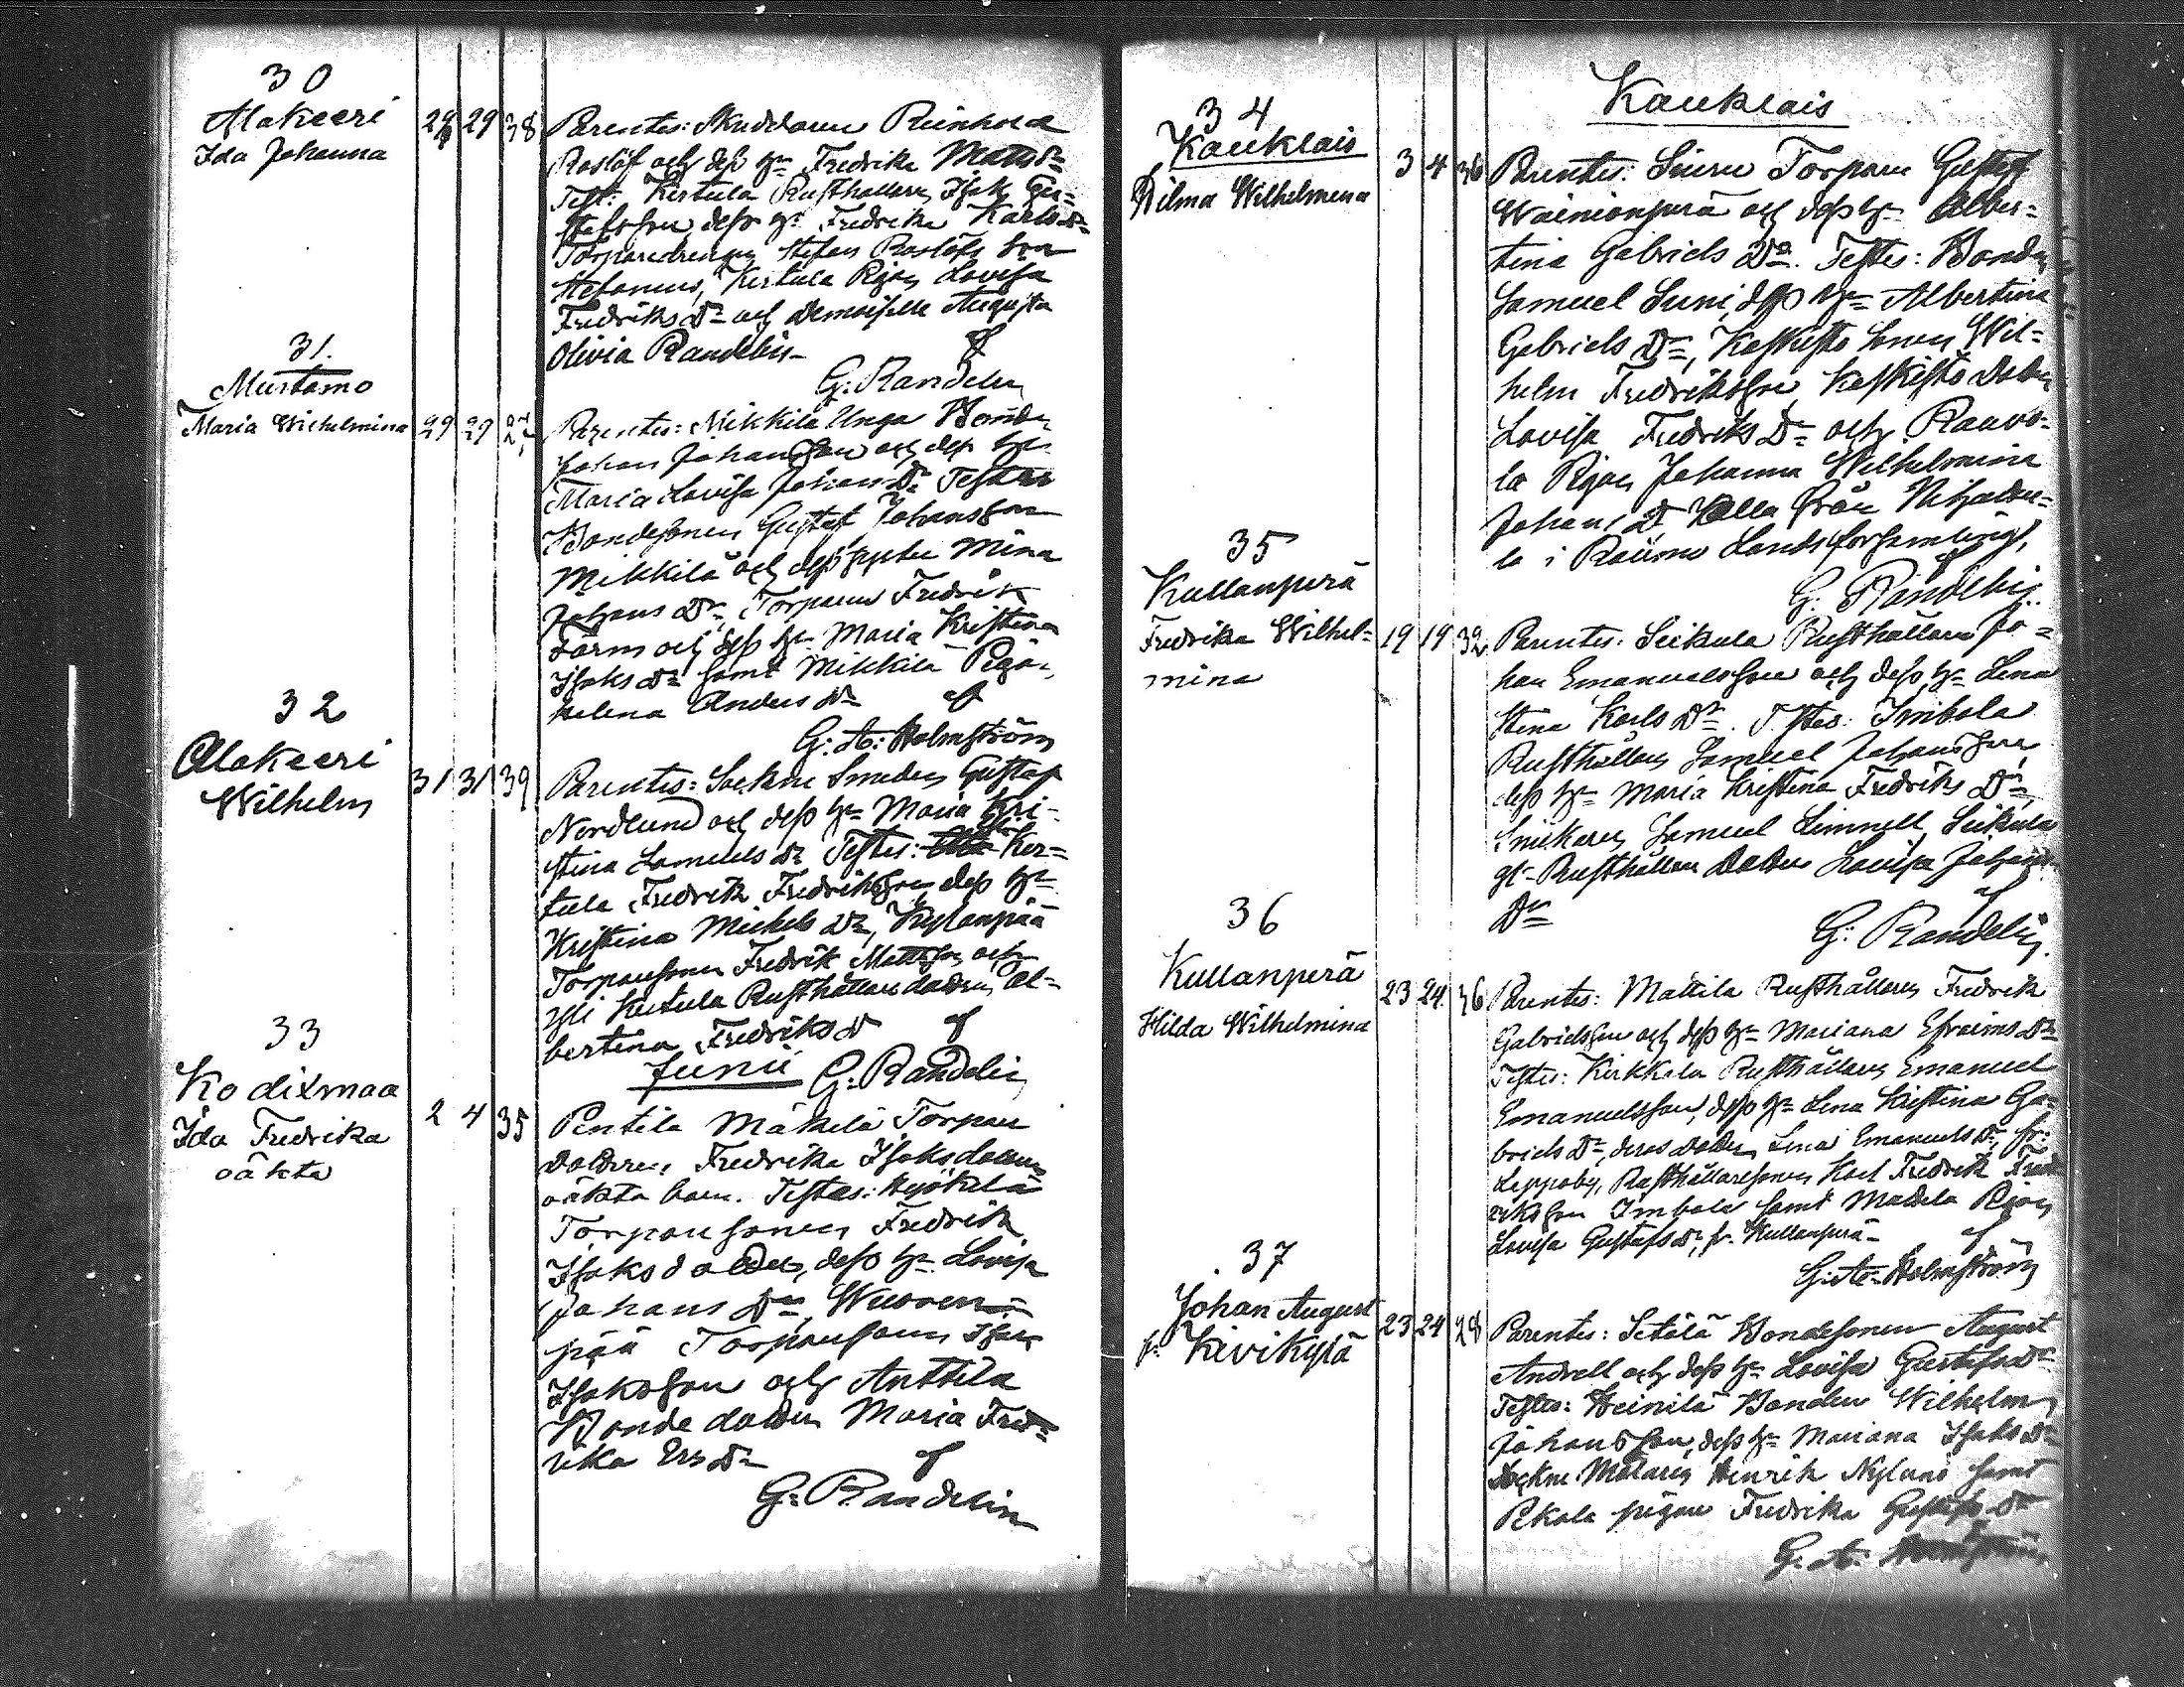 30
Alakeeri
Ida Johanna
29 29 38
Parentes: Muddaren Reinhold
Roslöf och dess h Fredrika Matts Dr
Test: Kertula Rusthållaren Isak Gu=
stafsson, dess h Fredrika Karls Dr
Torparedrengen Stefan Roslöfs
Kertula Pigan Lovisa
Fredriks Dr och Demoiselle Augusta
Olivia Randelin
af
G: Randelin
31.
Mustamo
Maria Wilhelmina
29 29
Parentes: Mikkilä Unga Bonden
Johan Johansson och dess h
Maria Lovisa Johans Dr Testes
Bondesonen Gustaf Johansson
Mikkilä och dess Mina
Johans Dr, Torparen Fredrik
och dess h Maria Kristina
Isaks Dr samt Mikkilä Pigan
Helena Anders Dr
af
G: A: Holmström
32
Alakeeri
Wilhelm
31 31 39
Parentes: Sockne Smeden Gustaf
Nordlund och dess h Maria Kri-
stina Samuels Dr Testes: Ker=
tula Fredrik Fredriksson, dess h
Kristina Mickels Dr, Kylänpää
Torparesonen Fredrik Mattsson och
Kertula Rusthållare dottren Al=
bertina Fredriks Dr
af
G: Randelin
Junii
33
Kodixmaa
Ida Fredrika
oäkta
2 4 35
Pentila Mäkelä Torpare
dottren Fredrika Isaksdotters
oäkta barn. Testes:
Torparesonen Fredrik
Isaks dess h Lovisa
Johans Dr, Wuoren=
pää Torparesonen Isak
Isaksson och Anttila
Bonde dottren Maria Fred=
rika Ers Dr
af
G: Randelin
34
Kauklais
Wilma Wilhelmina
3 4 36
Kauklais
Parentes: Torparen Gustaf
Wainionperä och dess h Alber=
tina Gabriels Dr. Testes: Bonden
Samuel Suni, dess h Albertina
Gabriels Dr, Kaskisto Sonen Wil=
helm Fredriksson, Kaskisto Dottren
Lovisa Fredriks Dr och Rauvo=
la Pigan Johanna Wilhelmina
Johans Dr Kalla från
la i Raumo Landsförsamling,
af
G: Randelin
35
Kullanperä
Fredrika Wilhel=
mina
19 19 32
Parentes: Seikula Rusthållaren Jo=
han Emanuelsson och dess h Lena
Stina Karls Dr. Testes: Imbola
Rusthållaren Samuel Johansson,
dess h Maria Kristina Fredriks Dr,
Snickaren Samuel Linnell, Seikula
gl- Rusthållare Dotter Lovisa Johans
Dr
af
G: Randelin
36
Kullanperä
Hilda Wilhelmina
23 24 36
Parentes: Mattila Rusthållaren Fredrik
Gabrielsson och dess h Mariana Efraims Dr
Testes: Kirkkala Rusthållaren Emanuel
Emanuelsson, dess h Lena Kristina Ga=
briels Dr, deras dotter Lena Emanuels Dr, fr:
Leppäby, Rusthållaresonen Karl Fredrik Fred
riksson Imbola samt Mattila Pigan
Lovisa Gustafs Dr, fr. Kullanperä
af
G: A: Holmström
37
Johan August
fr. Kivikylä
23 24 28
Parentes: Setälä Bondesonen August
Andrell och dess h Lovisa Gustafs Dr
Testes: Heinilä Bonden Wilhelm
Johansson, dess h Mariana Isaks Dr
Sockne Målaren Henrik Nylund samt
Pekola pigan Fredrika Gustafs Dr
G: A: Holmström